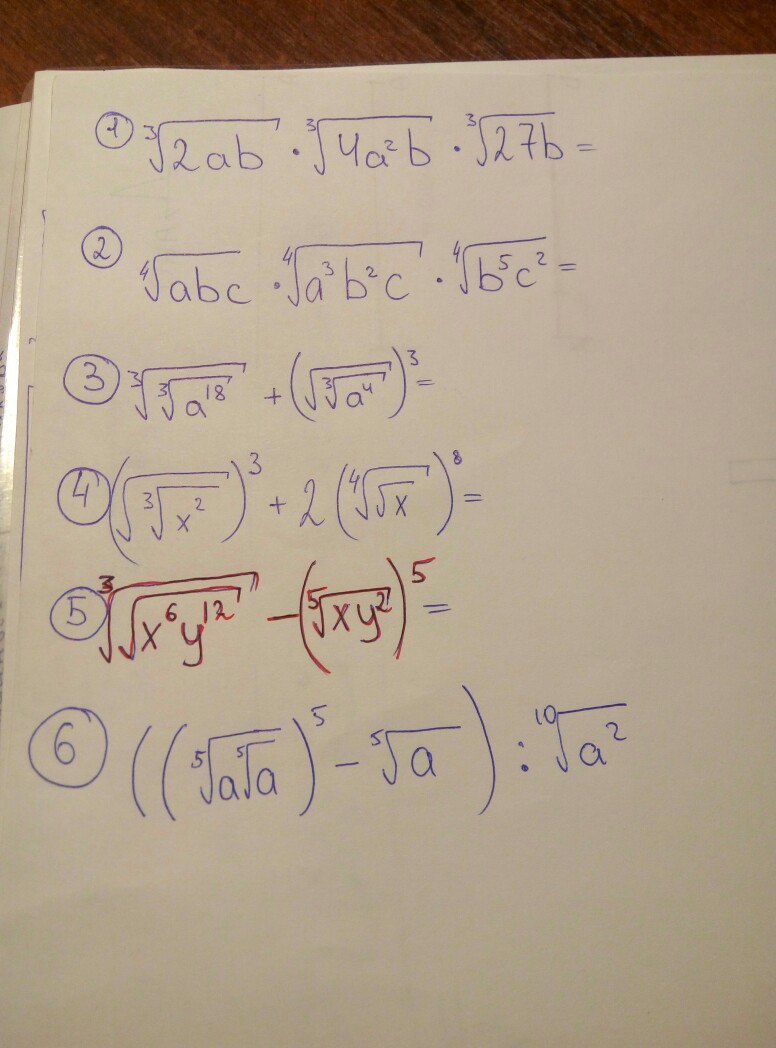 ① ∛(2ab) · ∛(4a²b) · ∛(27b) =
② ∜(abc) · ∜(a³b²c) · ∜(b⁵c²) =
③ ∛(∛(a¹⁸)) + (√(∛(a⁴)))³ =
④ (√(∛(x²)))³ + 2(∜(√x))⁸ =
⑤ ∛(√(x⁶y¹²)) − (⁵√(xy²))⁵ =
⑥ ((⁵√(a⁵√a))⁵ − ⁵√a) : ¹⁰√(a²)